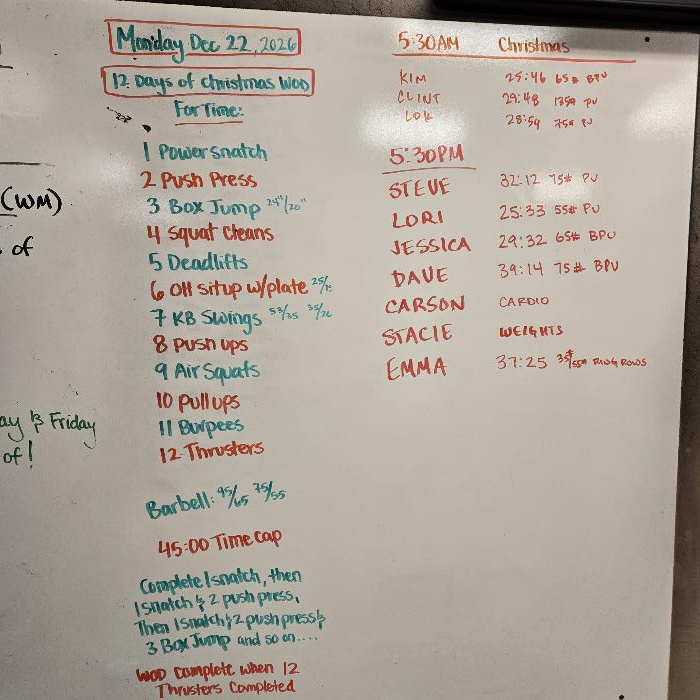 Monday Dec 22, 2026
12 Days of Christmas WOD
For Time:
1 Power snatch
2 Push Press
3 Box Jump 24"/20"
4 Squat Cleans
5 Deadlifts
6 OH situp w/plate 25/15
7 KB Swings 53/35 35/26
8 Push ups
9 Air Squats
10 Pull ups
11 Burpees
12 Thrusters
Barbell: 95/65 75/55
45:00 Time cap
Complete 1 snatch, then
1 snatch & 2 push press,
Then 1 snatch & 2 push press &
3 Box Jump and so on....
WOD complete when 12
Thrusters Completed
5:30AM Christmas
KIM 25:46 65# BPU
CLINT 29:48 135# PU
28:54 75# PU
5:30PM
STEVE 32:12 75# PU
LORI 25:33 55# PU
JESSICA 29:32 65# BPU
DAVE 39:14 75# BPU
CARSON CARDIO
STACIE WEIGHTS
EMMA 37:25 35#/55# RING ROWS
(WM)
of
ay & Friday
of!